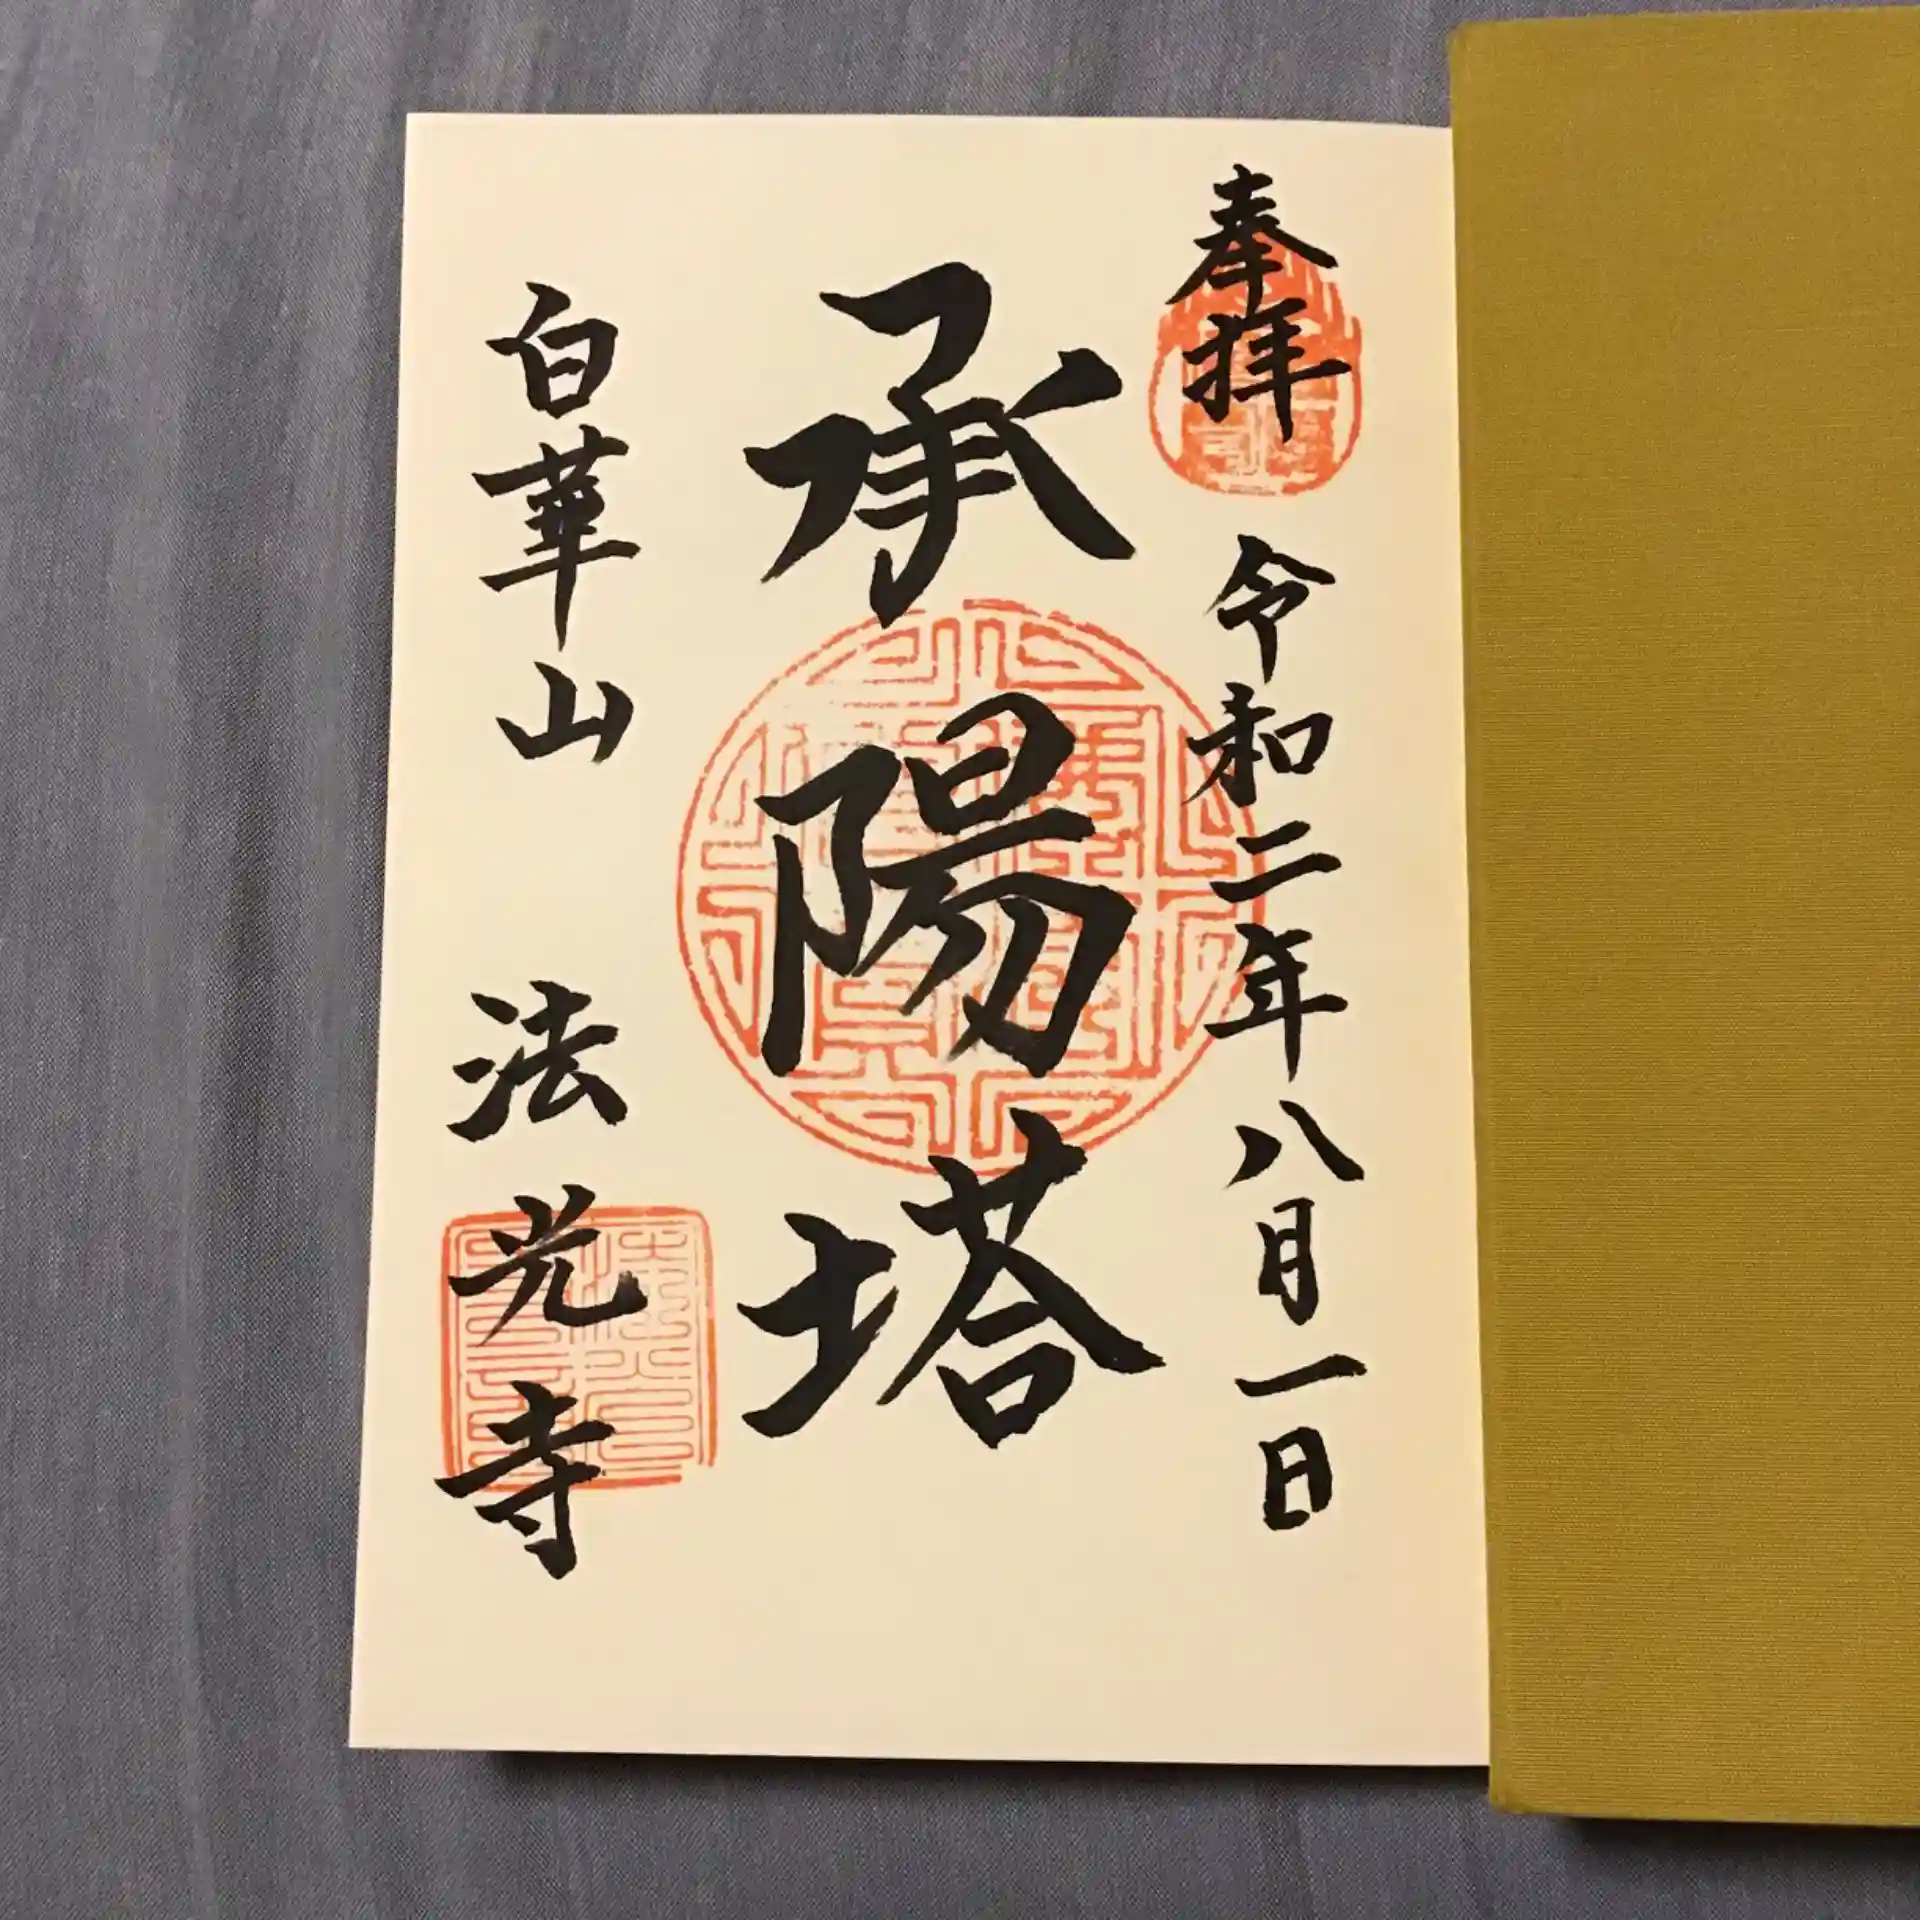 奉拝
令和二年八月一日
承陽塔
白華山 法光寺